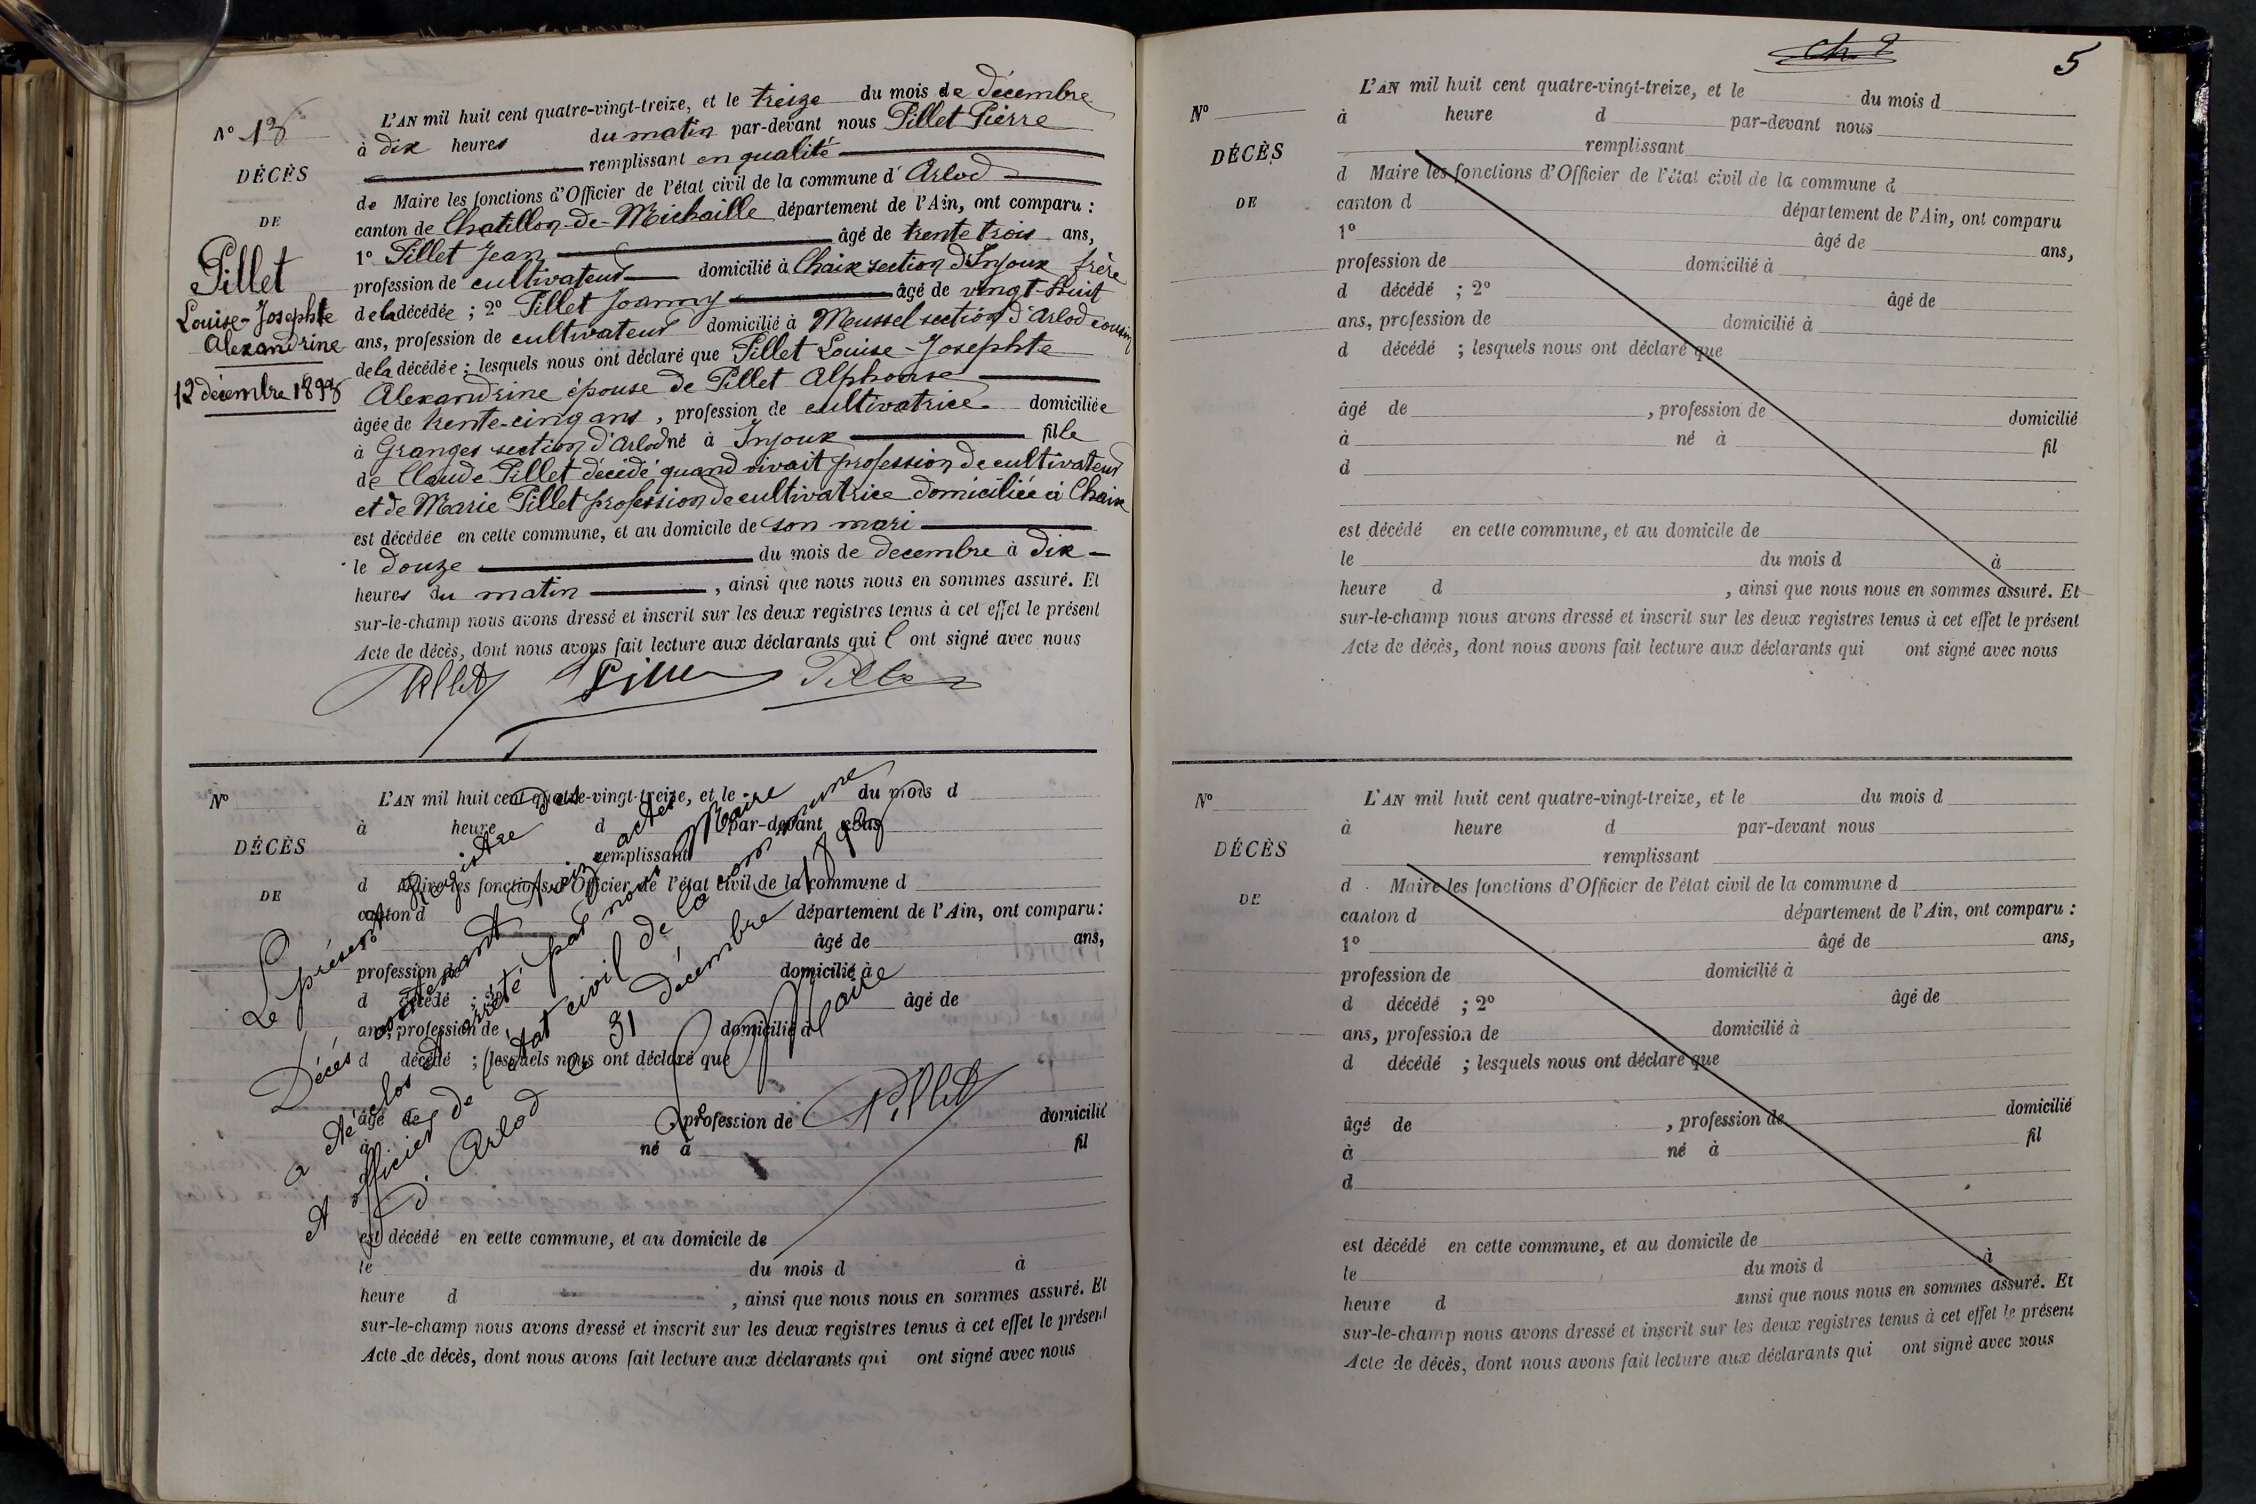 N° 13
DÉCÈS
DE
Pillet
Louise-Josephte
Alexandrine
12 décembre 1893
L'AN mil huit cent quatre-vingt-treize, et le treize du mois de décembre
à dix heures du matin par-devant nous Pillet Pierre
remplissant en qualité
de Maire les fonctions d'Officier de l'état civil de la commune d'Arlod
canton de Chatillon-de-Michaille département de l'Ain, ont comparu :
1° Pillet Jean âgé de trente trois ans,
profession de cultivateur domicilié à Chaix section d'Injoux frère
de la décédée ; 2° Pillet Joanny âgé de vingt-huit
ans, profession de cultivateur domicilié à Meussel section d'Arlod cousin
de la décédée ; lesquels nous ont déclaré que Pillet Louise-Josephte
Alexandrine épouse de Pillet Alphonse
âgée de trente-cinq ans, profession de cultivatrice domiciliée
à Granges section d'Arlod né à Injoux fille
de Claude Pillet décédé quand vivait profession de cultivateur
et de Marie Pillet profession de cultivatrice domiciliée à Chaix
est décédée en cette commune, et au domicile de son mari
le douze du mois de decembre à dix
heures du matin, ainsi que nous nous en sommes assuré. Et
sur-le-champ nous avons dressé et inscrit sur les deux registres tenus à cet effet le présent
Acte de décès, dont nous avons fait lecture aux déclarants qui l ont signé avec nous
Pillet Pillet Pillet
N°
DÉCÈS
DE
L'AN mil huit cent quatre-vingt-treize, et le du mois d
à heure d par-devant nous
remplissant
d Maire les fonctions d'Officier de l'état civil de la commune d
canton d département de l'Ain, ont comparu :
âgé de ans,
profession de domicilié à
d décédé ; 2° âgé de
ans, profession de domicilié à
d décédé ; lesquels nous ont déclaré que
âgé de profession de domicilié
à né à fil
est décédé en cette commune, et au domicile de
le du mois d à
heure d , ainsi que nous nous en sommes assuré. Et
sur-le-champ nous avons dressé et inscrit sur les deux registres tenus à cet effet le présent
Acte de décès, dont nous avons fait lecture aux déclarants qui ont signé avec nous
Le présent Registre des
Décès contenant treize actes
a été clos et arrêté par nous Maire
et officier de l'état civil de la commune
d'Arlod ce 31 décembre 1893
Le Maire
Pillet
ch. 2
5
N°
DÉCÈS
DE
L'AN mil huit cent quatre-vingt-treize, et le du mois d
à heure d par-devant nous
remplissant
d Maire les fonctions d'Officier de l'état civil de la commune d
canton d département de l'Ain, ont comparu
1° âgé de ans,
profession de domicilié à
d décédé ; 2° âgé de
ans, profession de domicilié à
d décédé ; lesquels nous ont déclaré que
âgé de , profession de domicilié
à né à fil
d
est décédé en cette commune, et au domicile de
le du mois d à
heure d , ainsi que nous nous en sommes assuré. Et
sur-le-champ nous avons dressé et inscrit sur les deux registres tenus à cet effet le présent
Acte de décès, dont nous avons fait lecture aux déclarants qui ont signé avec nous
N°
DÉCÈS
DE
L'AN mil huit cent quatre-vingt-treize, et le du mois d
à heure d par-devant nous
remplissant
d Maire les fonctions d'Officier de l'état civil de la commune d
canton d département de l'Ain, ont comparu :
1° âgé de ans,
profession de domicilié à
d décédé ; 2° âgé de
ans, profession de domicilié à
d décédé ; lesquels nous ont déclaré que
âgé de , profession de domicilié
à né à fil
d
est décédé en cette commune, et au domicile de
le du mois d à
heure d ainsi que nous nous en sommes assuré. Et
sur-le-champ nous avons dressé et inscrit sur les deux registres tenus à cet effet le présent
Acte de décès, dont nous avons fait lecture aux déclarants qui ont signé avec nous